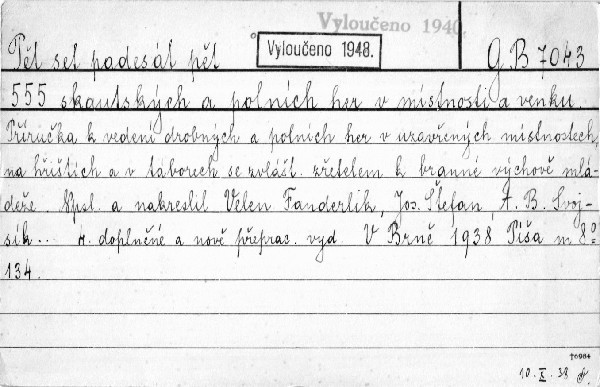 Vyloučeno 1940.
Vyloučeno 1948.
Pět set padesát pět G.B 7043
555 skautských a polních her v místnosti a venku.
Příručka k vedení drobných a polních her v uzavřených místnostech,
na hřištích a v táborech se zvlášt. zřetelem k branné výchově mlá-
deže. Npsl. a nakreslil Velen Fanderlik, Jos. Štefan, A. B. Svoj-
sík... 4. doplněné a nově přeprac. vyd. V Brně 1938, Píša m. 8º
134.
10. X. 38